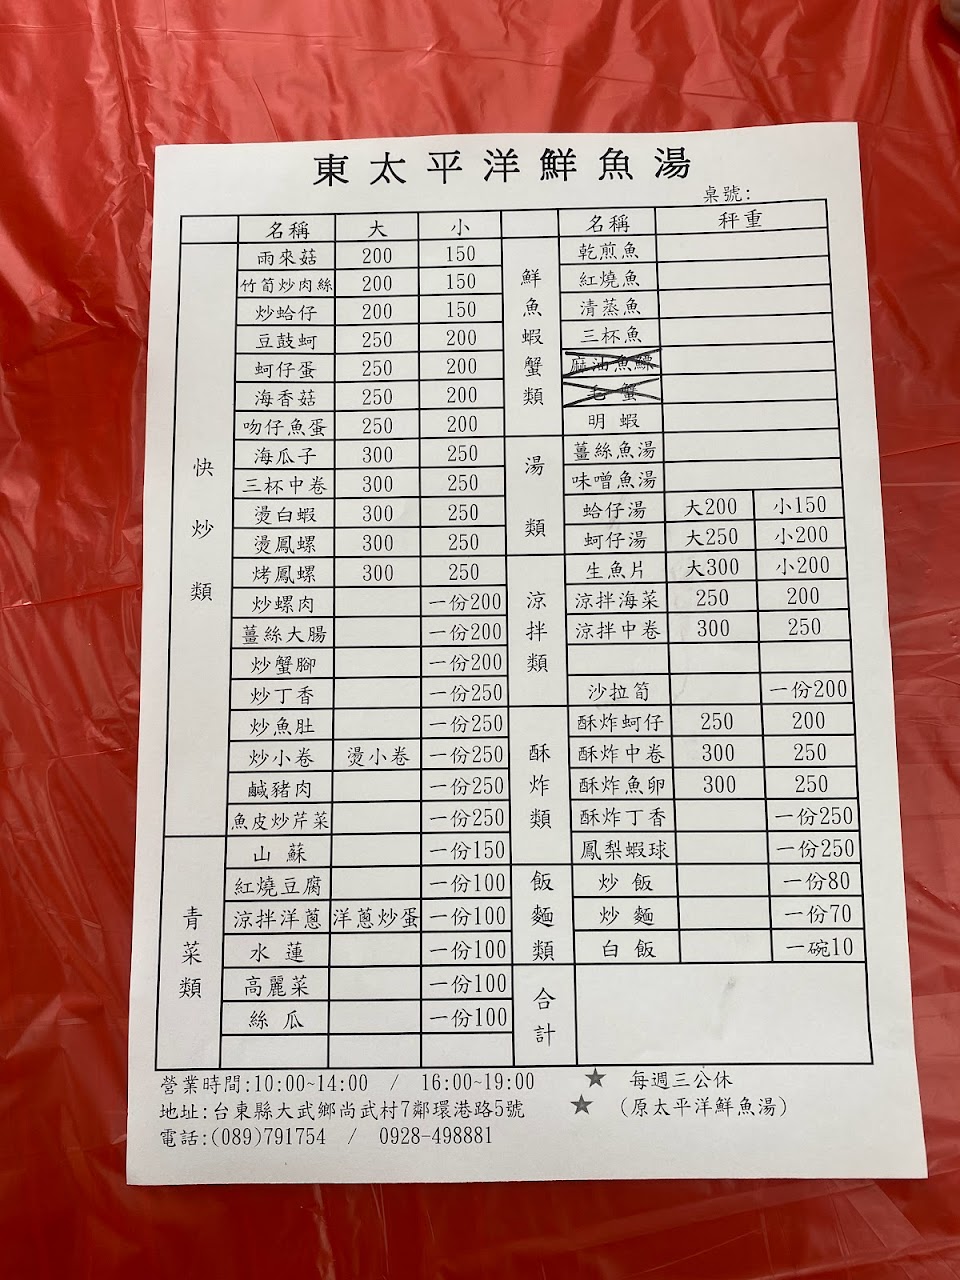 東太平洋鮮魚湯
桌號:
名稱 大 小
快炒類
雨來菇 200 150
竹筍炒肉絲 200 150
炒蛤仔 200 150
豆鼓蚵 250 200
蚵仔蛋 250 200
海香菇 250 200
吻仔魚蛋 250 200
海瓜子 300 250
三杯中卷 300 250
燙白蝦 300 250
燙鳳螺 300 250
烤鳳螺 300 250
炒螺肉 一份200
薑絲大腸 一份200
炒蟹腳 一份200
炒丁香 一份250
炒魚肚 一份250
炒小卷 燙小卷 一份250
鹹豬肉 一份250
魚皮炒芹菜 一份250
青菜類
山蘇 一份150
紅燒豆腐 一份100
涼拌洋蔥 洋蔥炒蛋 一份100
水蓮 一份100
高麗菜 一份100
絲瓜 一份100
名稱 秤重
鮮魚蝦蟹類
乾煎魚
紅燒魚
清蒸魚
三杯魚
麻油魚鰾
毛蟹
明蝦
湯類
薑絲魚湯
味噌魚湯
蛤仔湯 大200 小150
蚵仔湯 大250 小200
涼拌類
生魚片 大300 小200
涼拌海菜 250 200
涼拌中卷 300 250
沙拉筍 一份200
酥炸類
酥炸蚵仔 250 200
酥炸中卷 300 250
酥炸魚卵 300 250
酥炸丁香 一份250
鳳梨蝦球 一份250
飯麵類
炒飯 一份80
炒麵 一份70
白飯 一碗10
合計
營業時間:10:00~14:00 / 16:00~19:00 ★ 每週三公休
地址:台東縣大武鄉尚武村7鄰環港路5號 ★ (原太平洋鮮魚湯)
電話:(089)791754 / 0928-498881